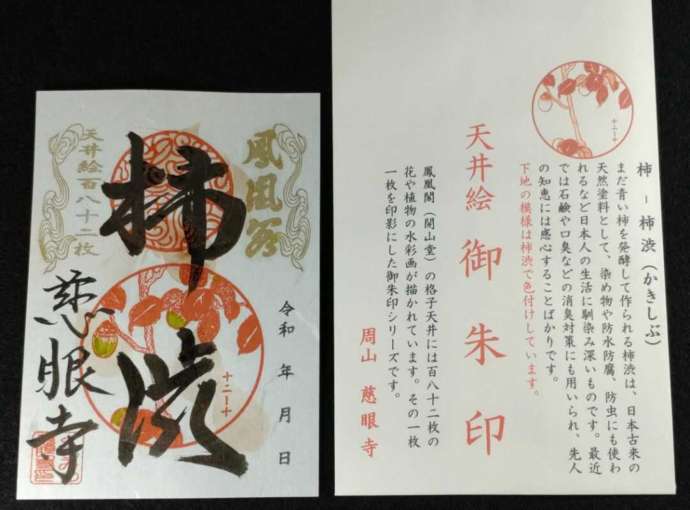 鳳凰閣
天井絵百八十二枚
柿渋
慈眼寺
令和 年 月 日
十二ー十
十二ー十
柿 - 柿渋(かきしぶ)
まだ青い柿を発酵して作られる柿渋は、日本古来の
天然塗料として、染め物や防水防腐、防虫にも使わ
れるなど日本人の生活に馴染み深いものです。最近
では石鹸や口臭などの消臭対策にも用いられ、先人
の知恵には感心することばかりです。
下地の模様は柿渋で色付けしています。
天井絵 御朱印
鳳凰閣(開山堂)の格子天井には百八十二枚の
花や植物の水彩画が描かれています。その一枚
一枚を印影にした御朱印シリーズです。
周山 慈眼寺